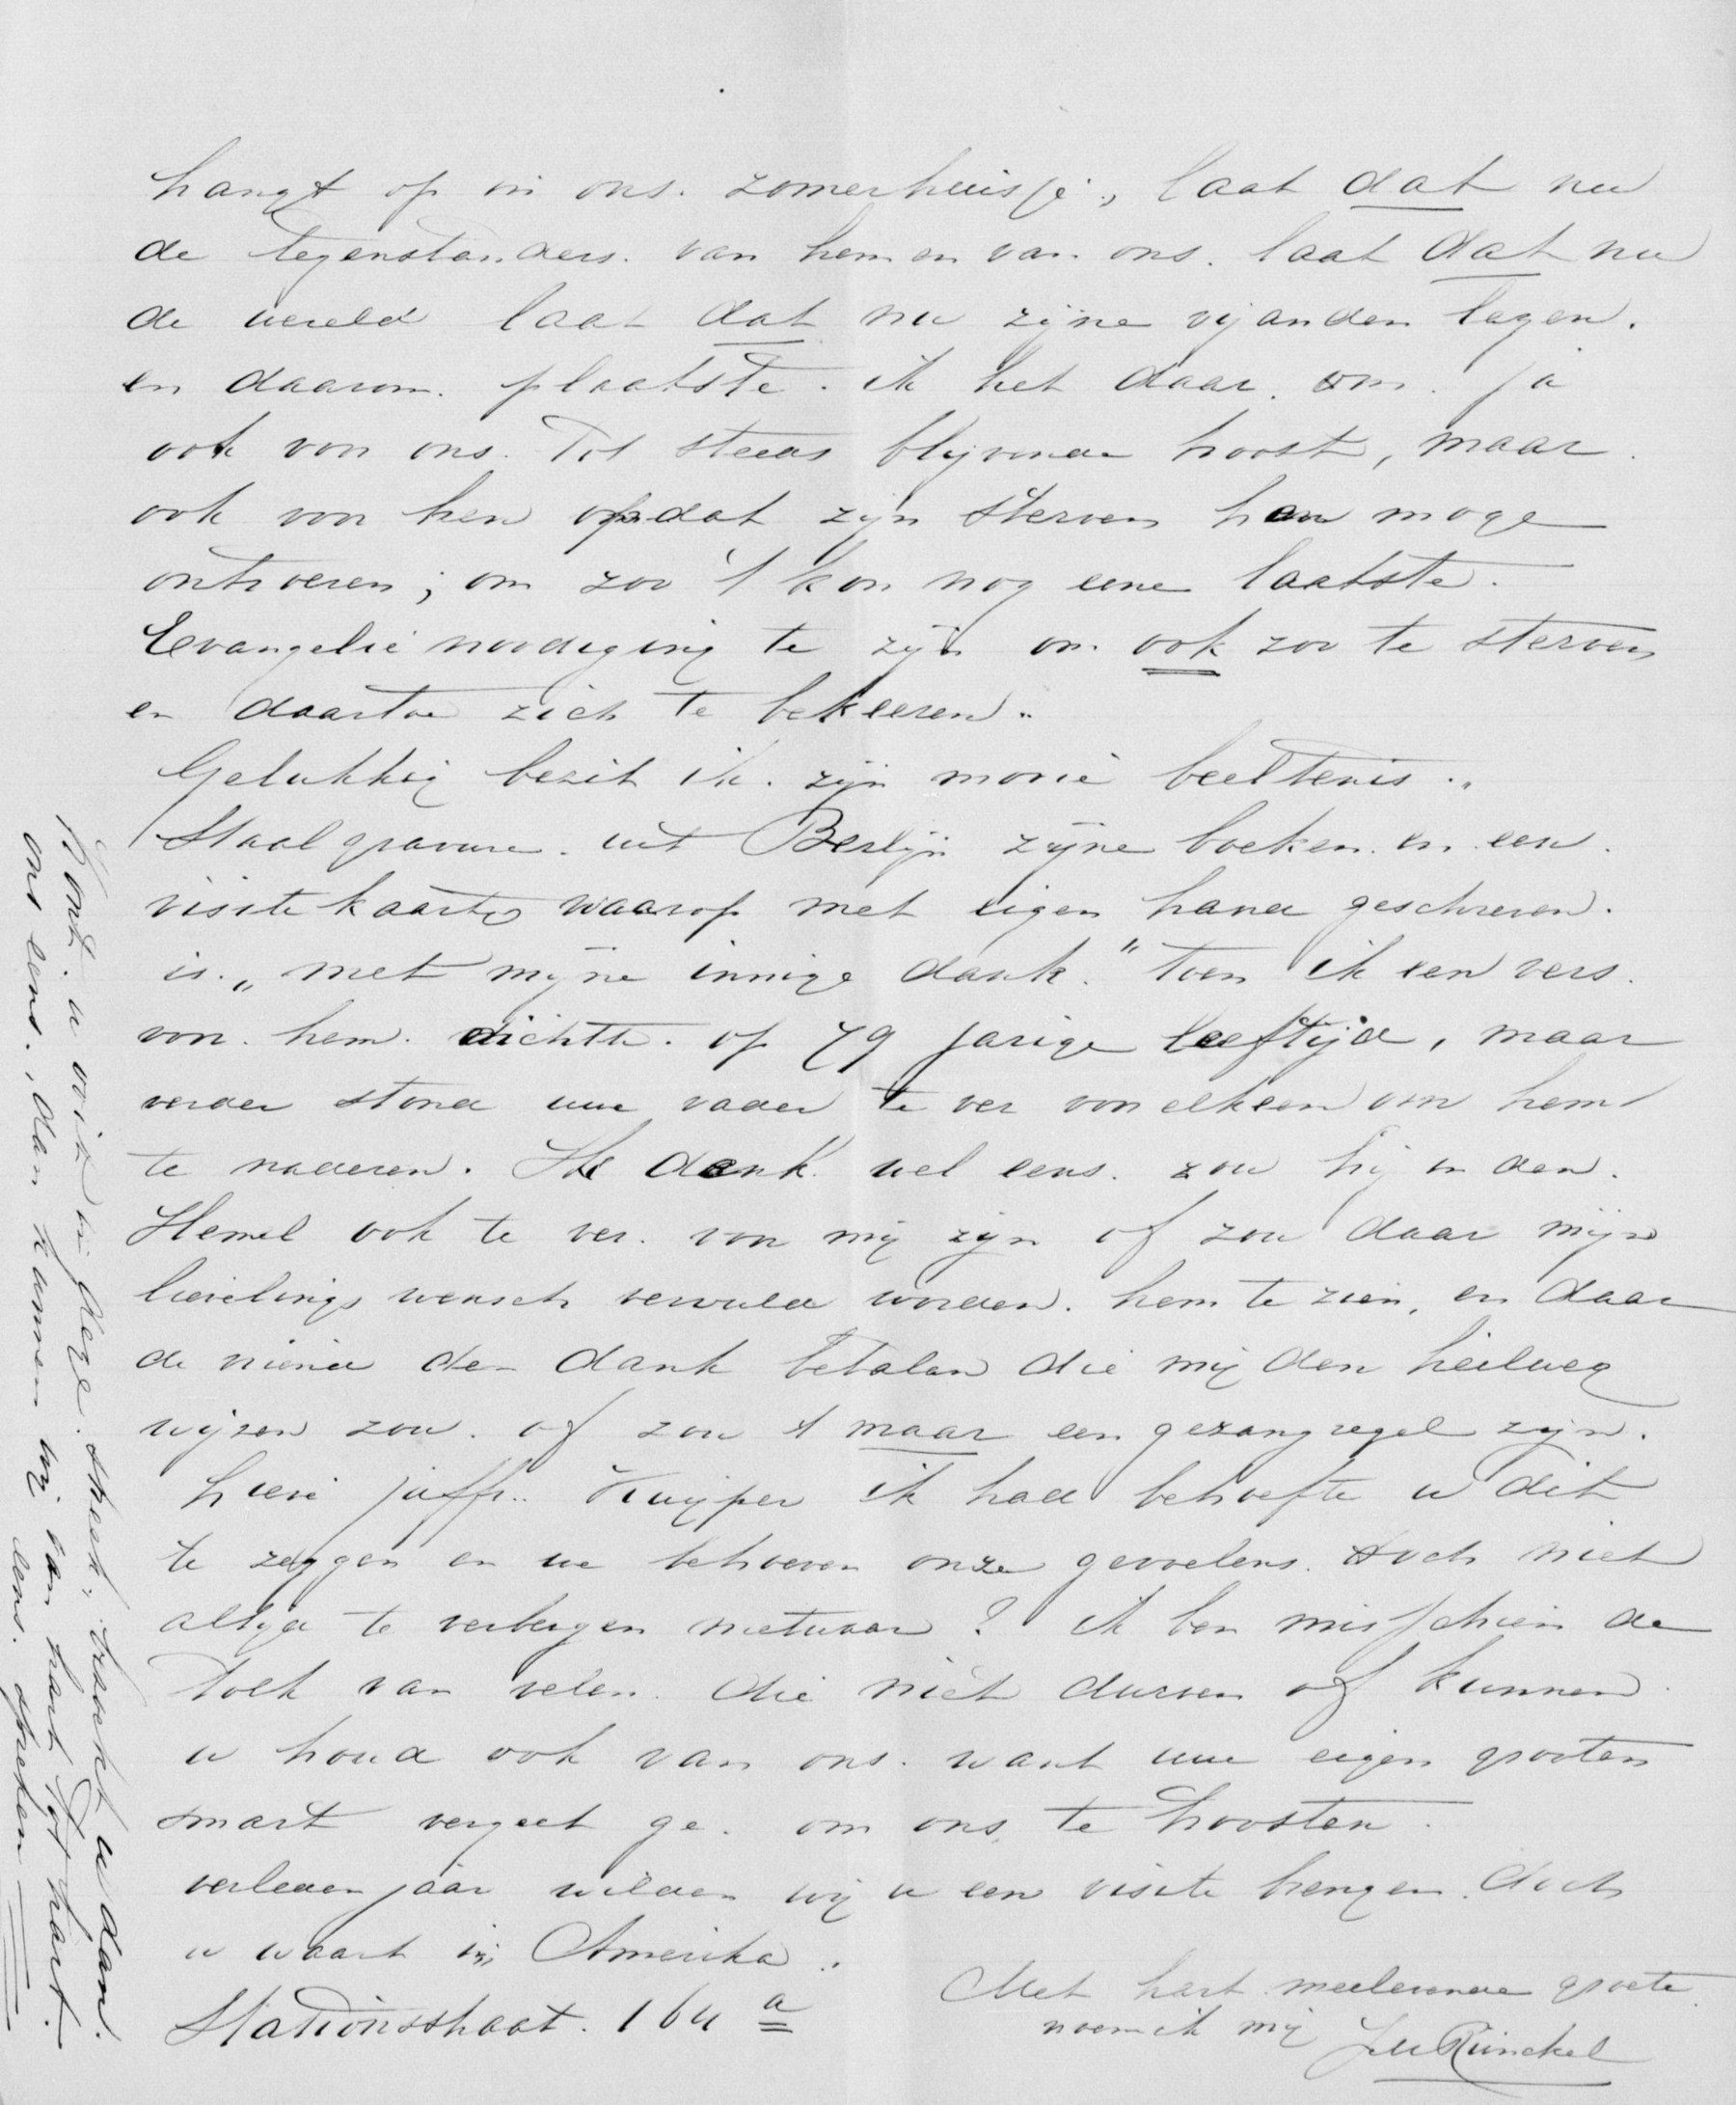 hangt op in ons. zomerhuisje, laat dat nu
de tegenstanders. van hem en van ons. laat dat nu
de wereld laat dat nu zijne vijanden lezen.
en daarom. plaatste. ik het daar. om. ja
ook voor ons. Tot steeds blijvende troost, maar.
ook voor hen opdat zijn sterven hen moge
ontroeren; om zoo 't kon nog eene laatste.
Evangelie noodiging te zijn om. ook zoo te sterven
en daartoe zich te bekeeren.
Gelukkig bezit ik. zijn mooie beeltenis.
Staalgravure. uit Berlijn zijne boeken. en een.
visitekaartje waarop met eigen hand geschreven.
is. „met mijne innige dank." toen ik een vers.
voor. hem. dichtte. op 79 jarige leeftijd, maar
verder stond uw vader te ver voor elkeen om hem
te naderen. Ik denk wel eens. zou hij in den.
Hemel ook te ver. voor mij zijn of zou daar mijn
lievelings wensch vervuld worden. hem te zien, en daar
de vriend den dank betalen die mij den heilweg
wijzen zou. of zou 't maar een gezangregel zijn.
Lieve juffr. Kuijper ik had behoefte u dit
te zeggen en we behoeven onze gevoelens. toch niet
altijd te verbergen nietwaar? ik ben misschien de
tolk van velen. die niet durven of kunnen
u houd ook van ons. want uw eigen grooten
smart vergeet ge. om ons te troosten.
verleden jaar wilden wij u een visite brengen. doch
u waart in Amerika.
Stationsstraat. 164 a
Met hart meelevende groete.
noem ik mij J M Runckel
Komt. u ooit in deze. streek, bezoekt u dan.
ons eens., dan kunnen wij van hart tot hart.
eens. spreken